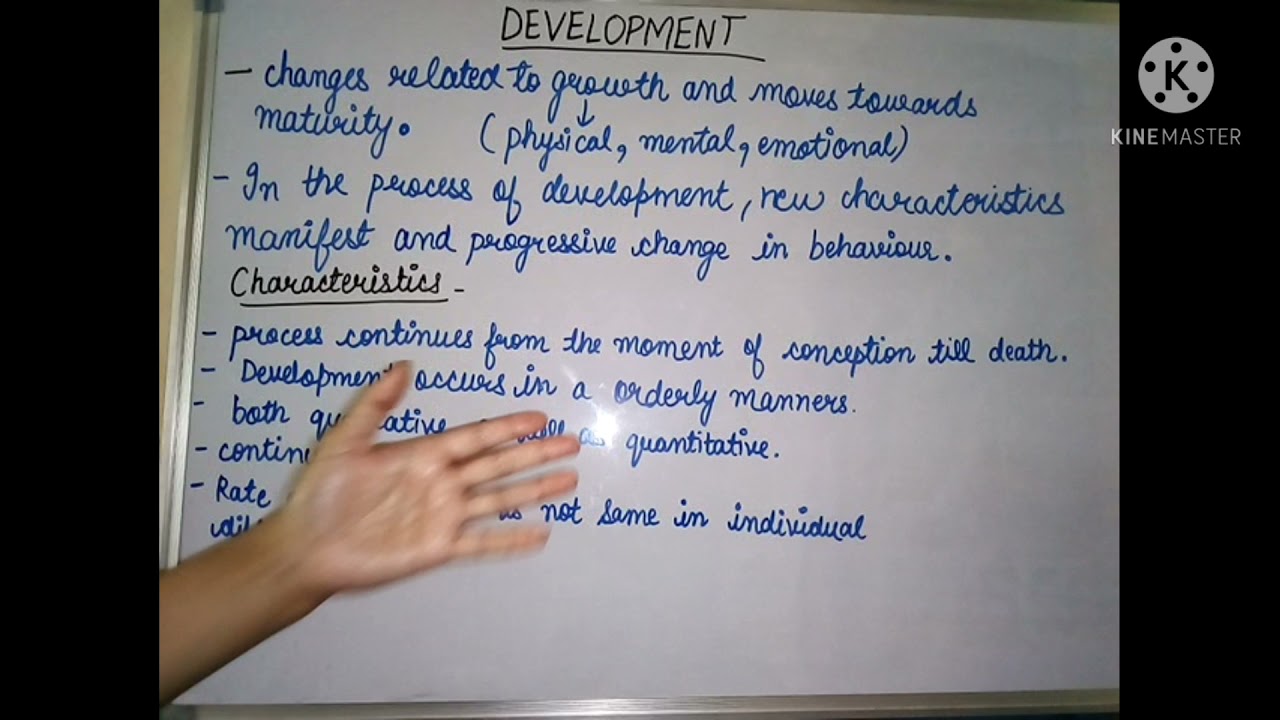 DEVELOPMENT
- changes related to growth and moves towards
maturity. (physical, mental, emotional)
- In the process of development, new characteristics
manifest and progressive change in behaviour.
Characteristics -
- process continues from the moment of conception till death.
- Development occurs in a orderly manners.
- both as quantitative.
-
- Rate not same in individual
K
KINEMASTER